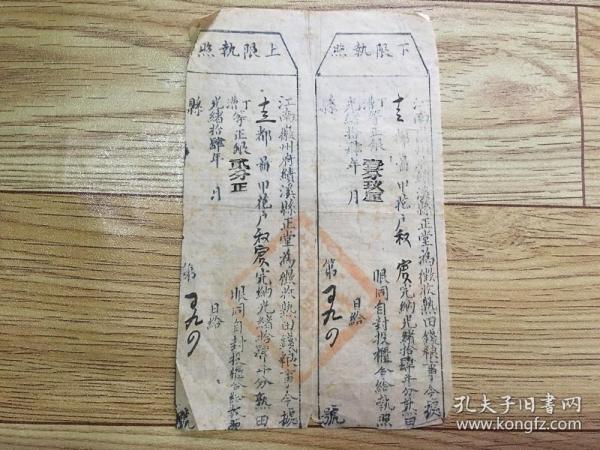 下限執照
江南徽州府績溪縣正堂為徵收熟田錢糧事今據
十三都 甲花户 完納光緒拾肆年分熟田
丁漕等正銀壹分玖厘 眼同自封投櫃合給執照
光緒拾肆年 月 日給
縣 第 號
上限執照
江南徽州府績溪縣正堂為徵收熟田錢糧事今據
十三都 甲花户 完納光緒拾肆年分熟田
丁漕等正銀貳分正 眼同自封投櫃合給執照
光緒拾肆年 月 日給
縣 第 號
孔夫子旧书网
www.kongfz.com